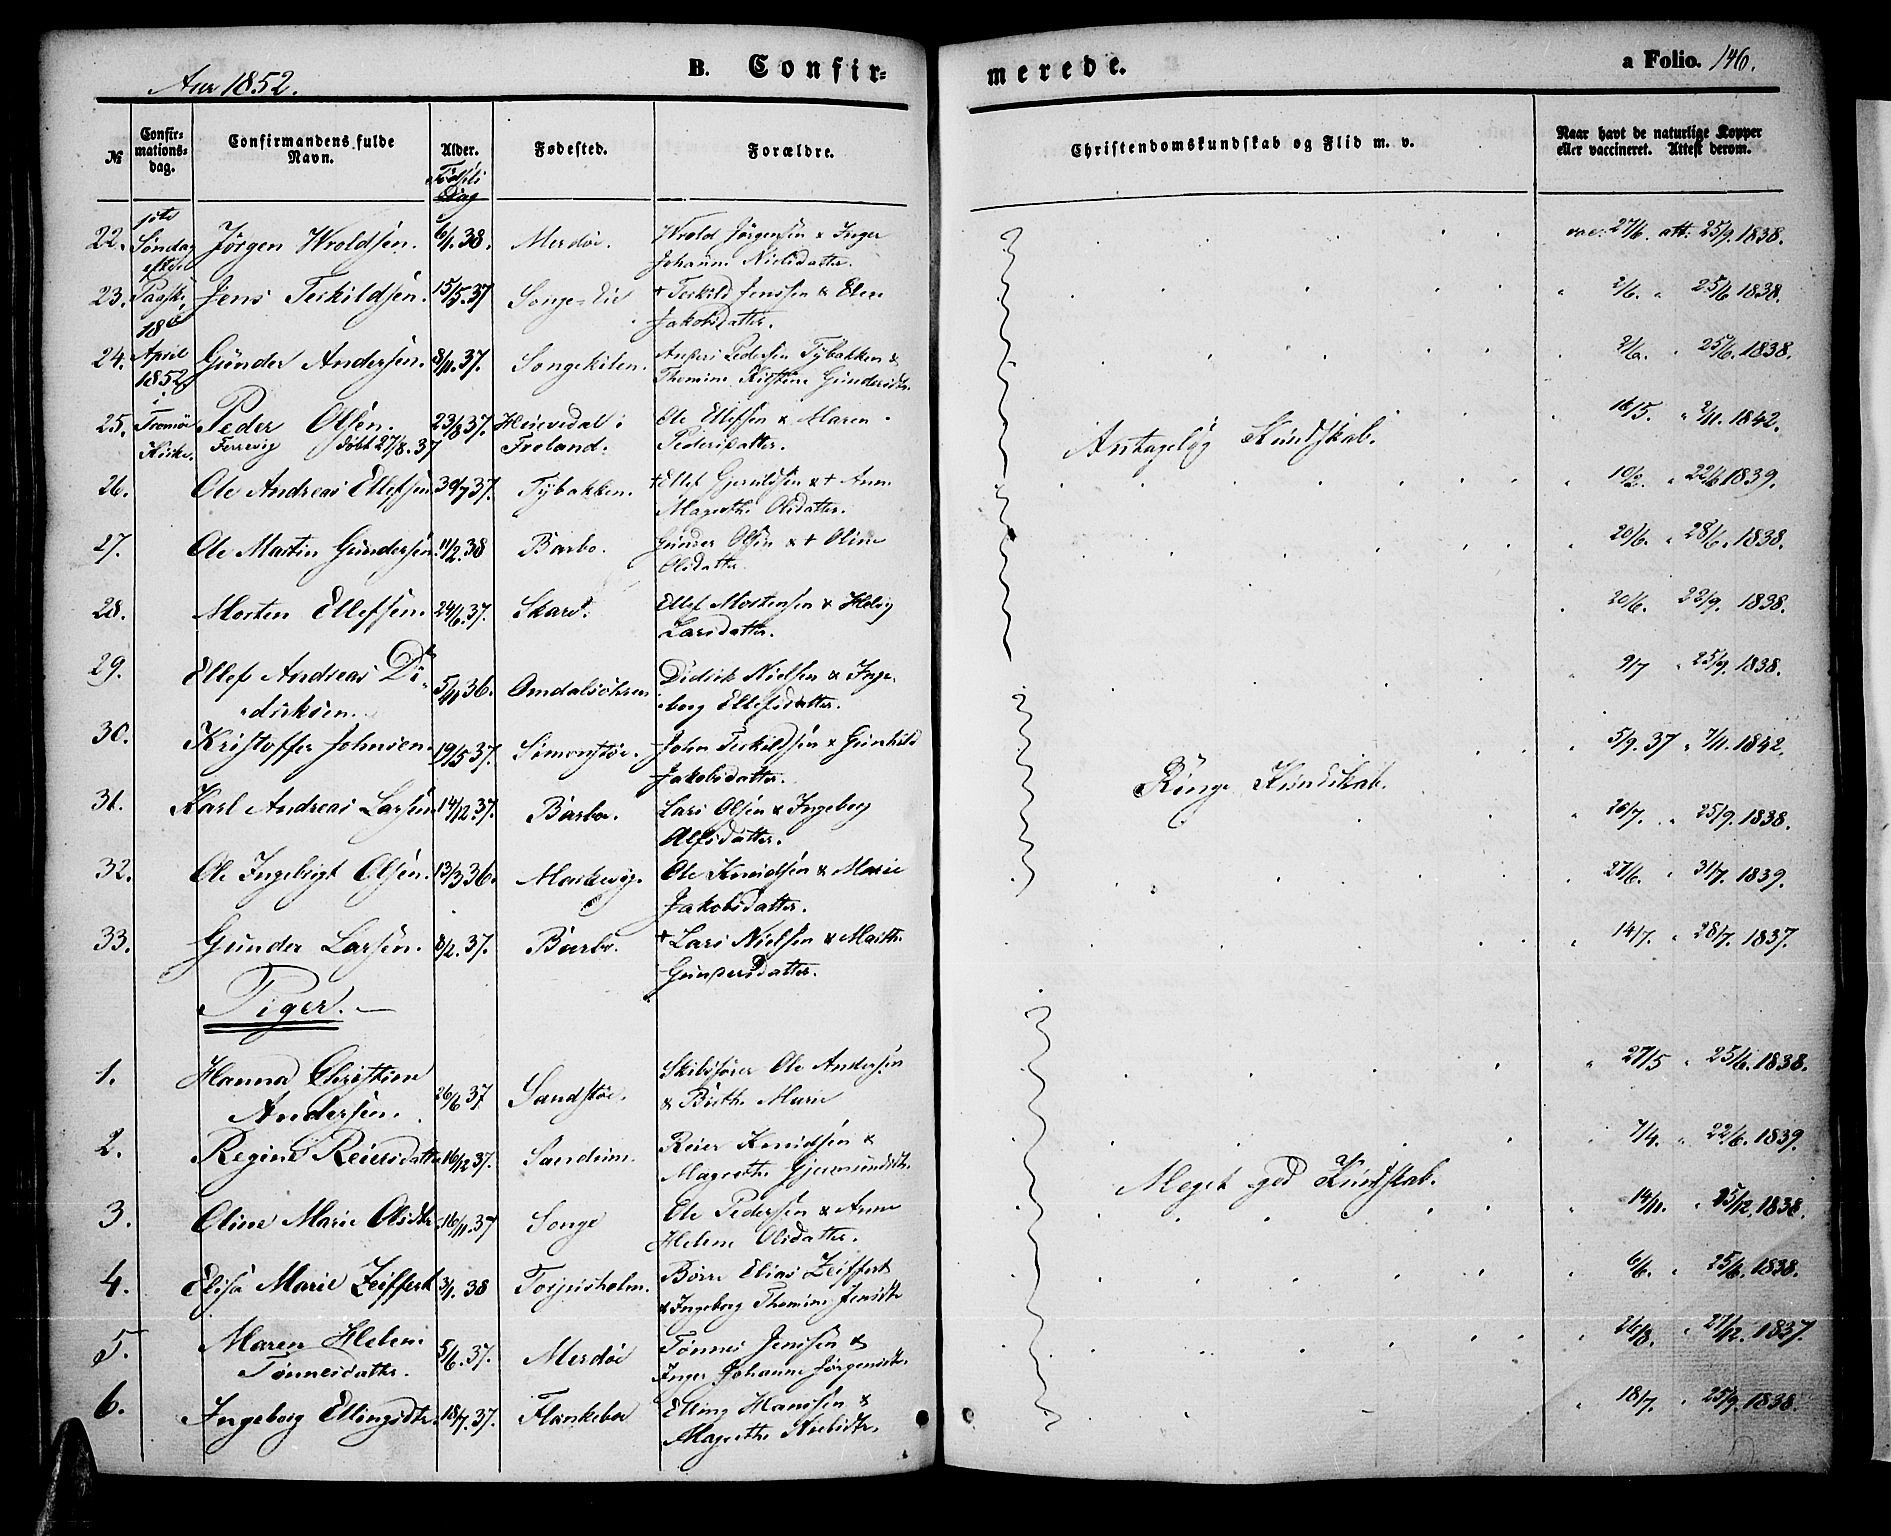 Aar 1852.
B. Confir-
merede.
a Folio. 146.
№
Confir-
mations-
dag.
Confirmandens fulde
Navn.
Alder.
Fødsels
Dag
Fødested.
Forældre.
Christendomskundskab og Flid m. v.
Naar havt de naturlige Kopper
eller vaccineret. Attest derom.
1ste
Søndag
efter
Paaske
18de
April
1852
i
Tromø
Kirke.
22. Jørgen Wroldsen. 6/1.38. Merdøe. Wrold Jørgensen & Inger
Johanne Nielsdatter.
vac: 27/6. att: 25/9.1838.
23. Jens Terkildsen. 15/5.37 Songe-Eie + Terkild Jenssen & Elen
Jakobsdatter.
2/6. " 25/6 1838.
24. Gunder Andersen. 8/11.37. Songekilen. Anders Pedersen Tybakken &
Thomine Kirstine Gundersdtr.
2/6. " 25/6.1838.
25. Peder Olsen. 23/8 37. i Ole Ellefsen & Maren
Færevig døbt 27/8.37 Froland. Pedersdatter.
Antagelig Kundskab.
16/5. " 2/11.1842.
26. Ole Andreas Ellefsen 30/7 37. Tybakken. + Ellef Gjeruldsen & + Anne
Magrethe Olsdatter.
10/2. " 22/6 1839.
27. Ole Martin Gundersen. 11/2.38 Barbo. Gunder Olsen & + Oline
Olsdatter
20/6. " 28/6.1838.
28. Morten Ellefsen. 24/6.37. Skare. Ellef Mortensen & Helvig
Larsdatter.
20/6. 22/9. 1838.
29. Ellef Andreas Di-
driksen. 5/11 36. Omdalsøhren Didrik Nielsen & Inge-
borg Ellefsdatter.
9/7 " 25/9.1838.
30. Kristoffer Johnsen. 19/5 37. Simonstøe. John Terkildsen & Gunhild
Jakobsdatter.
5/9.37 " 7/11.1842.
Ringe Kundskab.
31. Karl Andreas Larsen 14/12.37. Barbo. Lars Olsen & Ingeborg
Alfsdatter.
26/7. " 25/9.1838.
32. Ole Ingebrigt Olsen. 13/3 36. Markevig. Ole Knudsen & Marie
Jakobsdatter.
27/6. " 31/7. 1839.
33. Gunder Larsen. 8/2.37. Barbo. + Lars Nielsen & Marthe
Gundersdatter.
14/7. " 28/7. 1837.
Piger.
1. Hanna Christine
Andersen. 26/6 37 Sandstøe. Skibsfører Ole Andersen
& Birthe Marie
27/5 " 25/6.1838.
2. Regine Reiersdatter 16/12 37. Sandum. Reier Knudsen &
Magrethe Gjermundsdtr.
7/4. " 22/6.1839.
Meget god Kundskab.
3. Oline Marie Olsdtr. 16/11.37 Songe Ole Pedersen & Anne
Helene Olsdatter.
14/11. " 25/12.1838.
4. Elisa Marie Zeiffert 3/1.38 Torjusholm. Børre Elias Zeiffert
& Ingeborg Thomine Jensdtr
6/6. " 25/6.1838.
5. Maren Helene
Tønnesdatter. 5/6.37. Merdøe Tønnes Jenssen &
Inger Johanne Jørgensdtr.
26/8. " 27/12.1837.
6. Ingeborg Ellingsdtr. 18/7.37. Flankeboe Elling Hanssen &
Magrethe Nielsdtr.
18/7. " 25/9.1838.